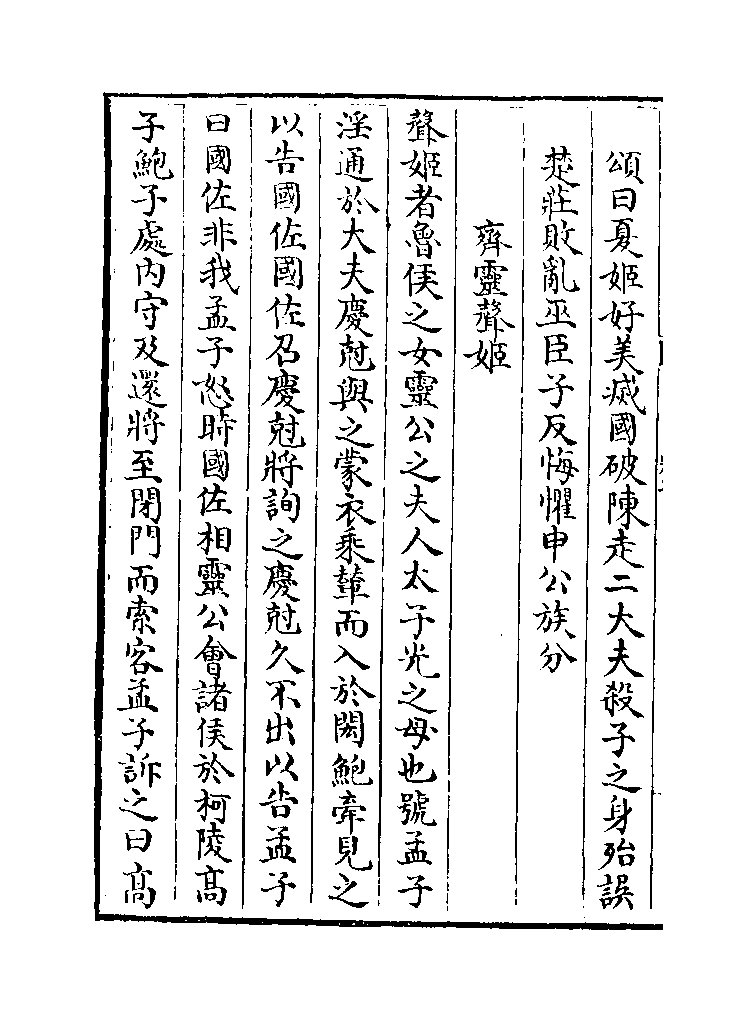 頌曰夏姬好美滅國破陳走二大夫殺子之身殆誤
楚莊敗亂巫臣子反悔懼申公族分
齊靈聲姬
聲姬者魯侯之女靈公之夫人太子光之母也號孟子
淫通於大夫慶尅與之蒙衣乘輦而入於閎鮑牽見之
以告國佐國佐召慶尅將詢之慶尅久不出以告孟子
曰國佐非我孟子怒時國佐相靈公會諸侯於柯陵高
子鮑子處内守及還將至閉門而索客孟子訴之曰高